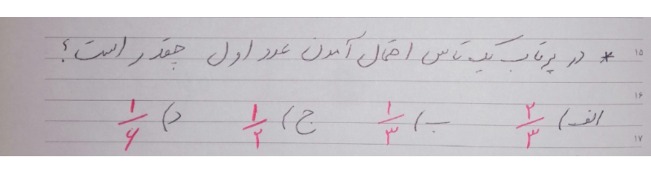 * در پرتاب یک تاس احتمال آمدن عدد اول چقدر است؟
الف) ۲/۳ ب) ۱/۳ ج) ۱/۲ د) ۱/۶
۱۵
۱۶
۱۷